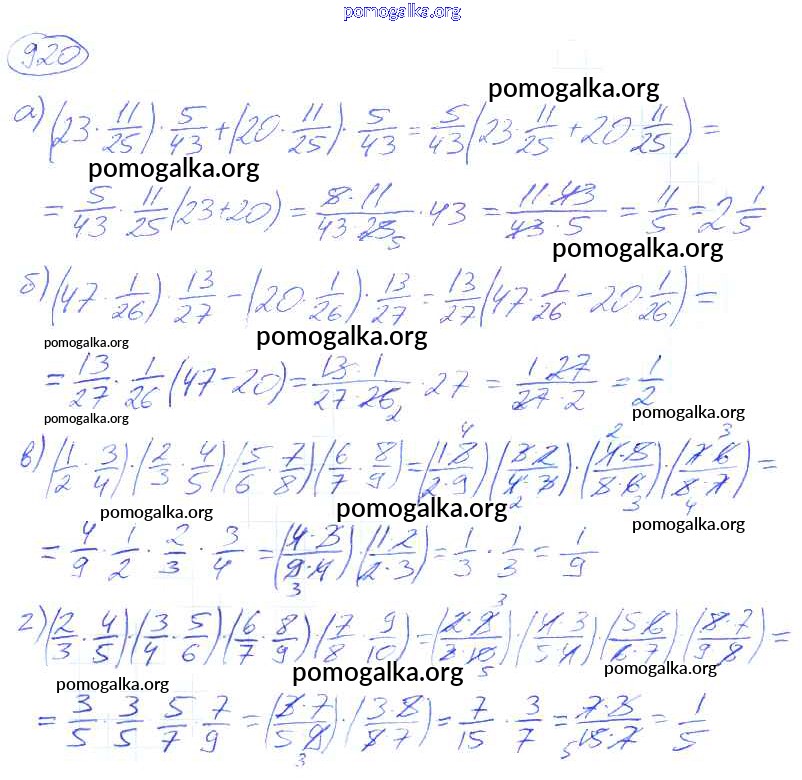 pomogalka.org
920
pomogalka.org
а) (23 · 11/25) · 5/43 + (20 · 11/25) · 5/43 = 5/43 (23 · 11/25 + 20 · 11/25) =
pomogalka.org
= 5/43 · 11/25 (23+20) = 5·11/43·25 5 · 43 = 11·43/43·5 = 11/5 = 2 1/5
pomogalka.org
б) (47 · 1/26) · 13/27 − (20 · 1/26) · 13/27 = 13/27 (47 · 1/26 − 20 · 1/26) =
pomogalka.org pomogalka.org
= 13/27 · 1/26 (47−20) = 13·1/27·26 2 · 27 = 1·27/27·2 = 1/2
pomogalka.org pomogalka.org
в) (1/2 · 3/4) · (2/3 · 4/5) (5/6 · 7/8) (6/7 · 8/9) = (1·8/2·9) 4 (3·2/4·3) 2 · (4·5/8·6) 2 3 · (7·6/8·7) 3 4 =
pomogalka.org pomogalka.org pomogalka.org
= 4/9 · 1/2 · 2/3 · 3/4 = (4·3/9·4) 3 (1·2/2·3) = 1/3 · 1/3 = 1/9
г) (2/3 · 4/5) · (3/4 · 5/6) · (6/7 · 8/9) · (7/8 · 9/10) = (2·9/3·10) 3 5 · (4·3/5·4) · (5·6/6·7) · (8·7/9·8) =
pomogalka.org pomogalka.org pomogalka.org
= 3/5 · 3/5 · 5/7 · 7/9 = (3·7/5·9) 3 · (3·5/5·7) = 7/15 · 3/7 = 7·3/15·7 5 = 1/5